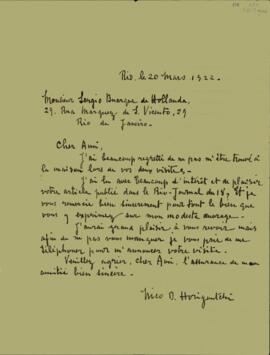 Rio, le 20 Mars 1922.
Monsieur Sergio Buarque de Hollanda,
29, Rua Marquez de S. Vicente, 29
Rio de Janeiro.
Cher Ami,
J'ai beaucoup regretté de ne pas m'être trouvé à
la maison lors de vos deux visites.
J'ai lu avec beaucoup d'intérêt et de plaisir
votre article publié dans le Rio-Journal du 18, et je
vous remercie bien sincèrement pour tout le bien que
vous y exprimez sur mon modeste ouvrage.
J'aurai grand plaisir à vous revoir mais
afin de ne pas vous manquer je vous prie de me
téléphoner pour m'annoncer votre visite.
Veuillez agréer, cher Ami, l'assurance de mon
amitié bien sincère.
Nico D. Horigoutchi